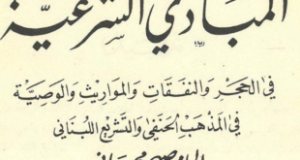 المبادئ الشرعية
في الحجر والنفقات والمواريث والوصية
في المذهب الحنفي والتشريع اللبناني